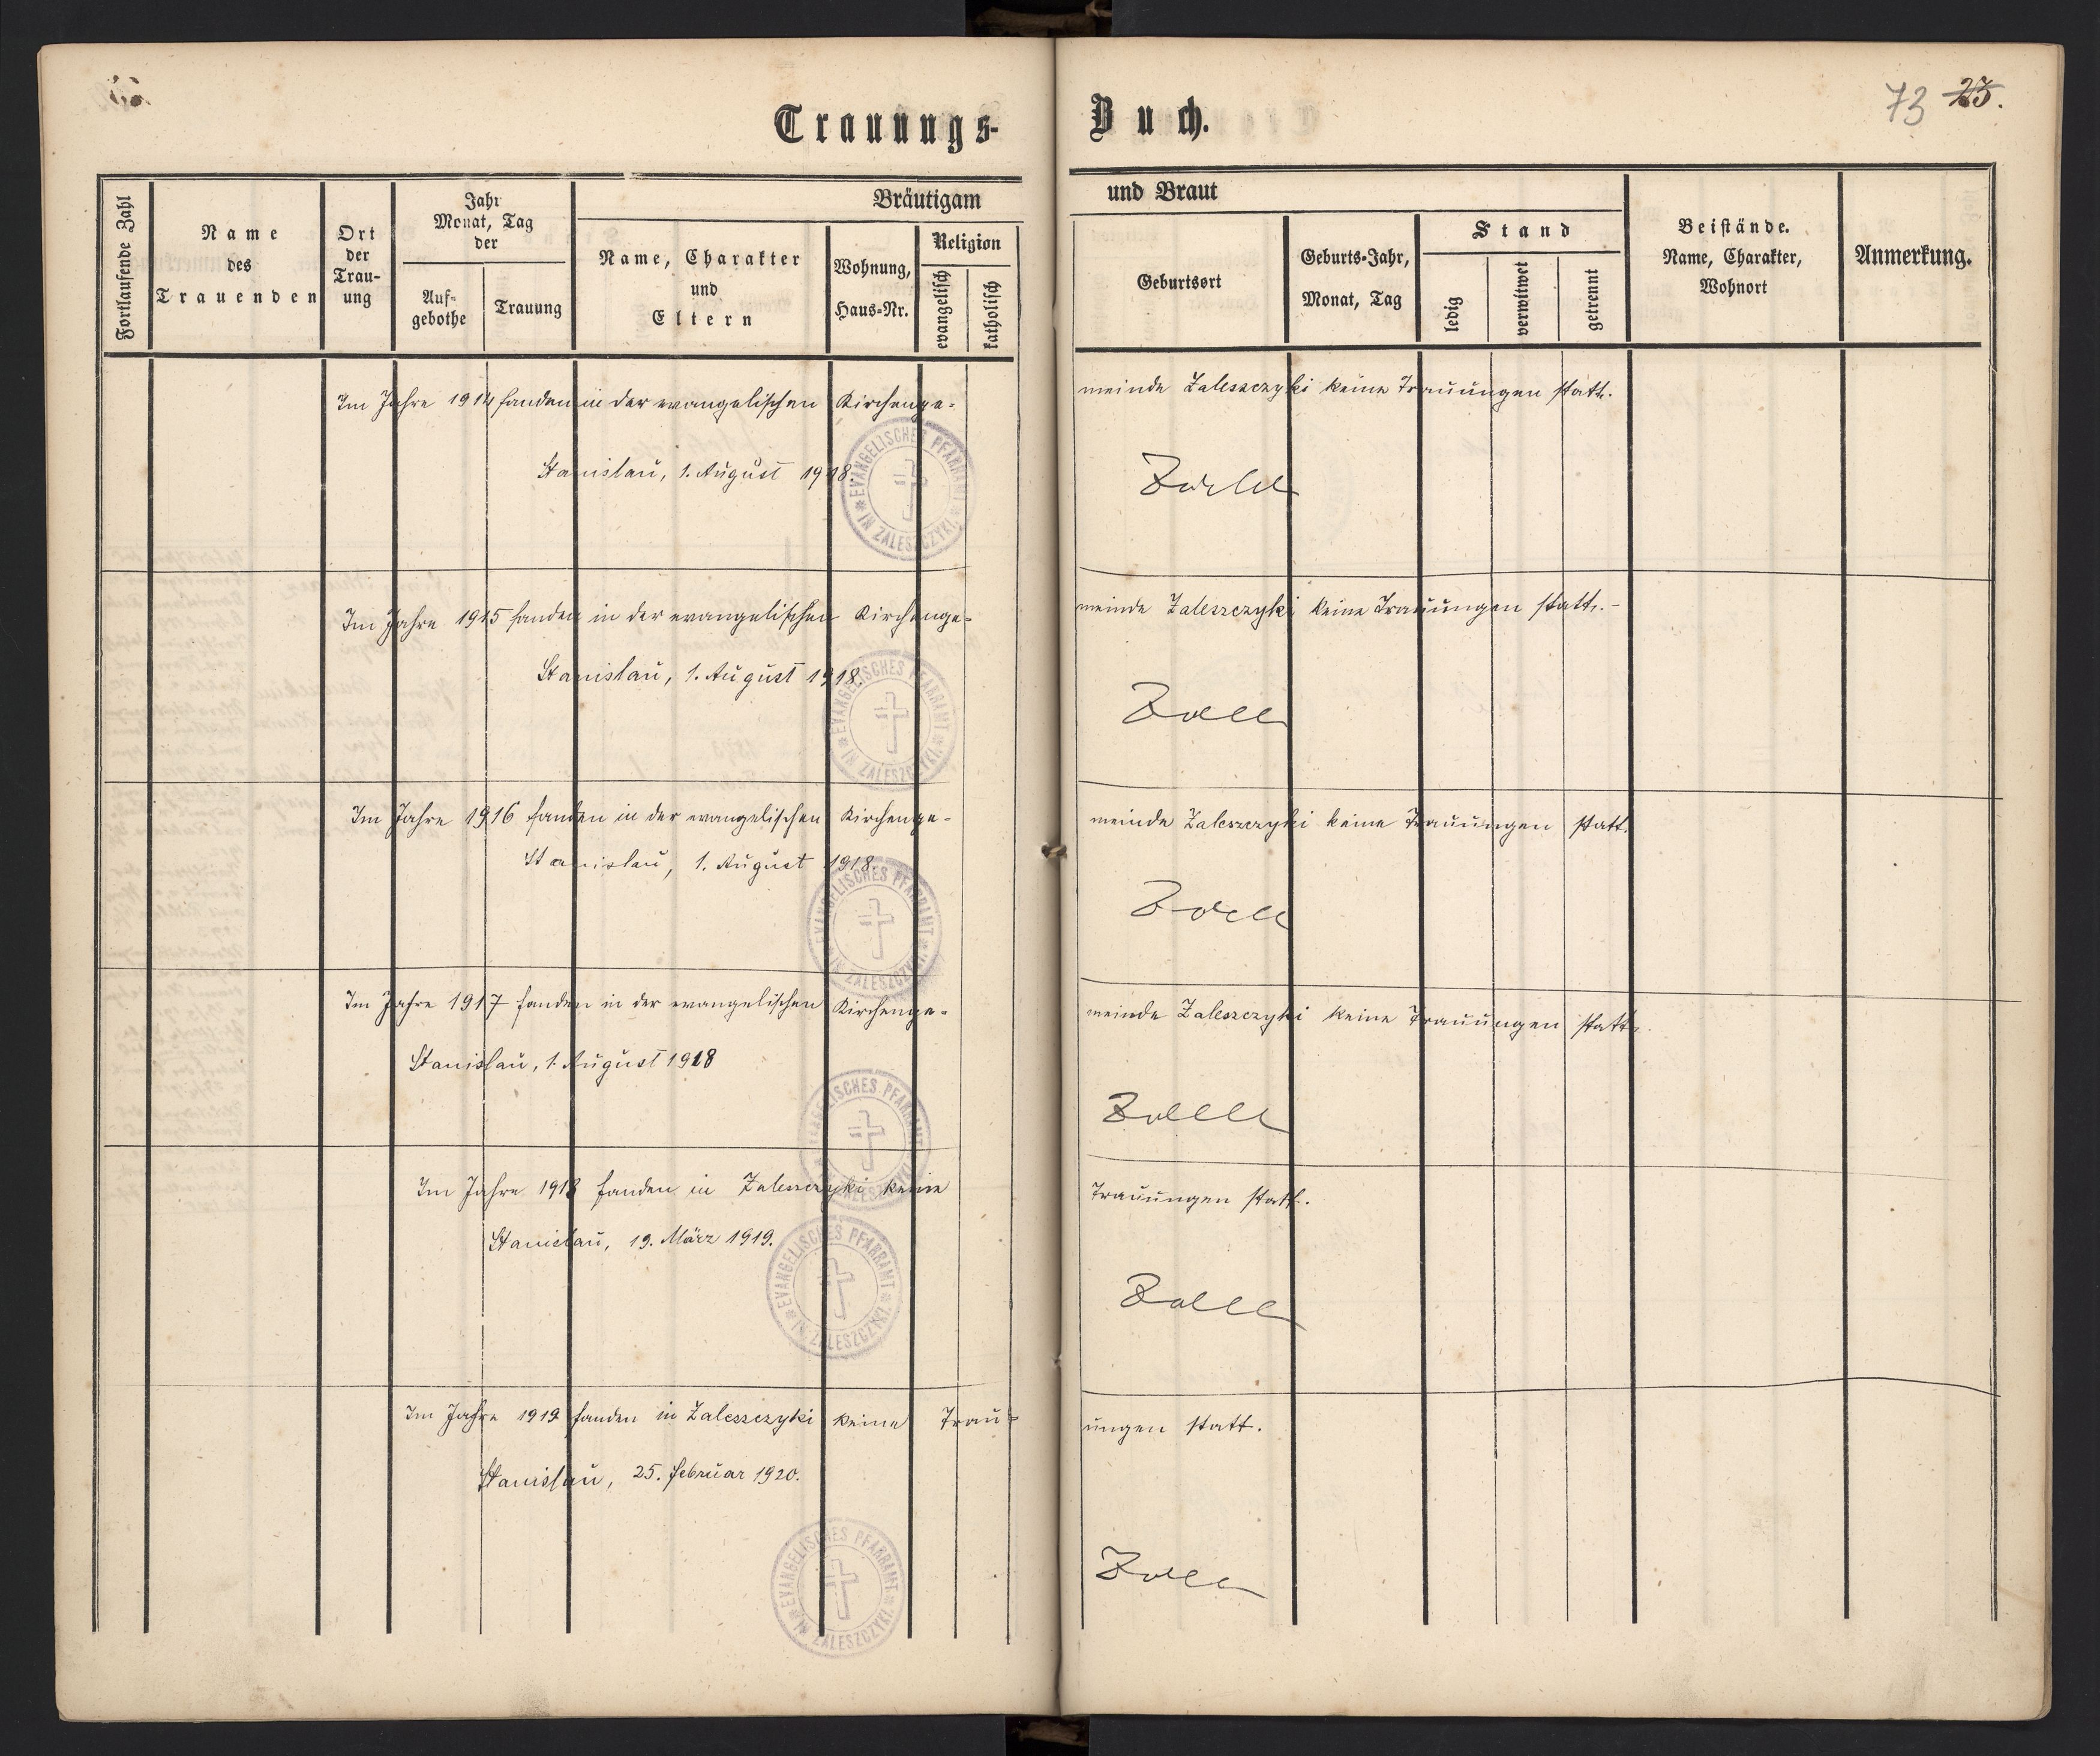 Trauungs-Buch.
73 25.
Fortlaufende Zahl
Name des Trauenden
Ort der Trau-ung
Jahr Monat, Tag der
Auf-gebothe
Trauung
Bräutigam und Braut
Name, Charakter und Eltern
Wohnung, Haus-Nr.
Religion
evangelisch
katholisch
Geburtsort
Geburts-Jahr, Monat, Tag
Stand
ledig
verwitwet
getrennt
Beistände. Name, Charakter, Wohnort
Anmerkung.
Im Jahre 1914 fanden in der evangelischen Kirchenge- meinde Zaleszczyki keine Trauungen statt.
Stanislau, 1. August 1918.
EVANGELISCHES PFARRAMT * IN ZALESZCZYKI *
Im Jahre 1915 fanden in der evangelischen Kirchenge- meinde Zaleszczyki keine Trauungen statt.-
Stanislau, 1. August 1918.
EVANGELISCHES PFARRAMT * IN ZALESZCZYKI *
Im Jahre 1916 fanden in der evangelischen Kirchenge- meinde Zaleszczyki keine Trauungen statt.
Stanislau, 1. August 1918.
EVANGELISCHES PFARRAMT * IN ZALESZCZYKI *
Im Jahre 1917 fanden in der evangelischen Kirchenge- meinde Zaleszczyki keine Trauungen statt.
Stanislau, 1. August 1918
EVANGELISCHES PFARRAMT * IN ZALESZCZYKI *
Im Jahre 1918 fanden in Zaleszczyki keine Trauungen statt.
Stanislau, 19. März 1919.
EVANGELISCHES PFARRAMT * IN ZALESZCZYKI *
Im Jahre 1919 fanden in Zaleszczyki keine Trau- ungen statt.
Stanislau, 25. Februar 1920.
EVANGELISCHES PFARRAMT * IN ZALESZCZYKI *